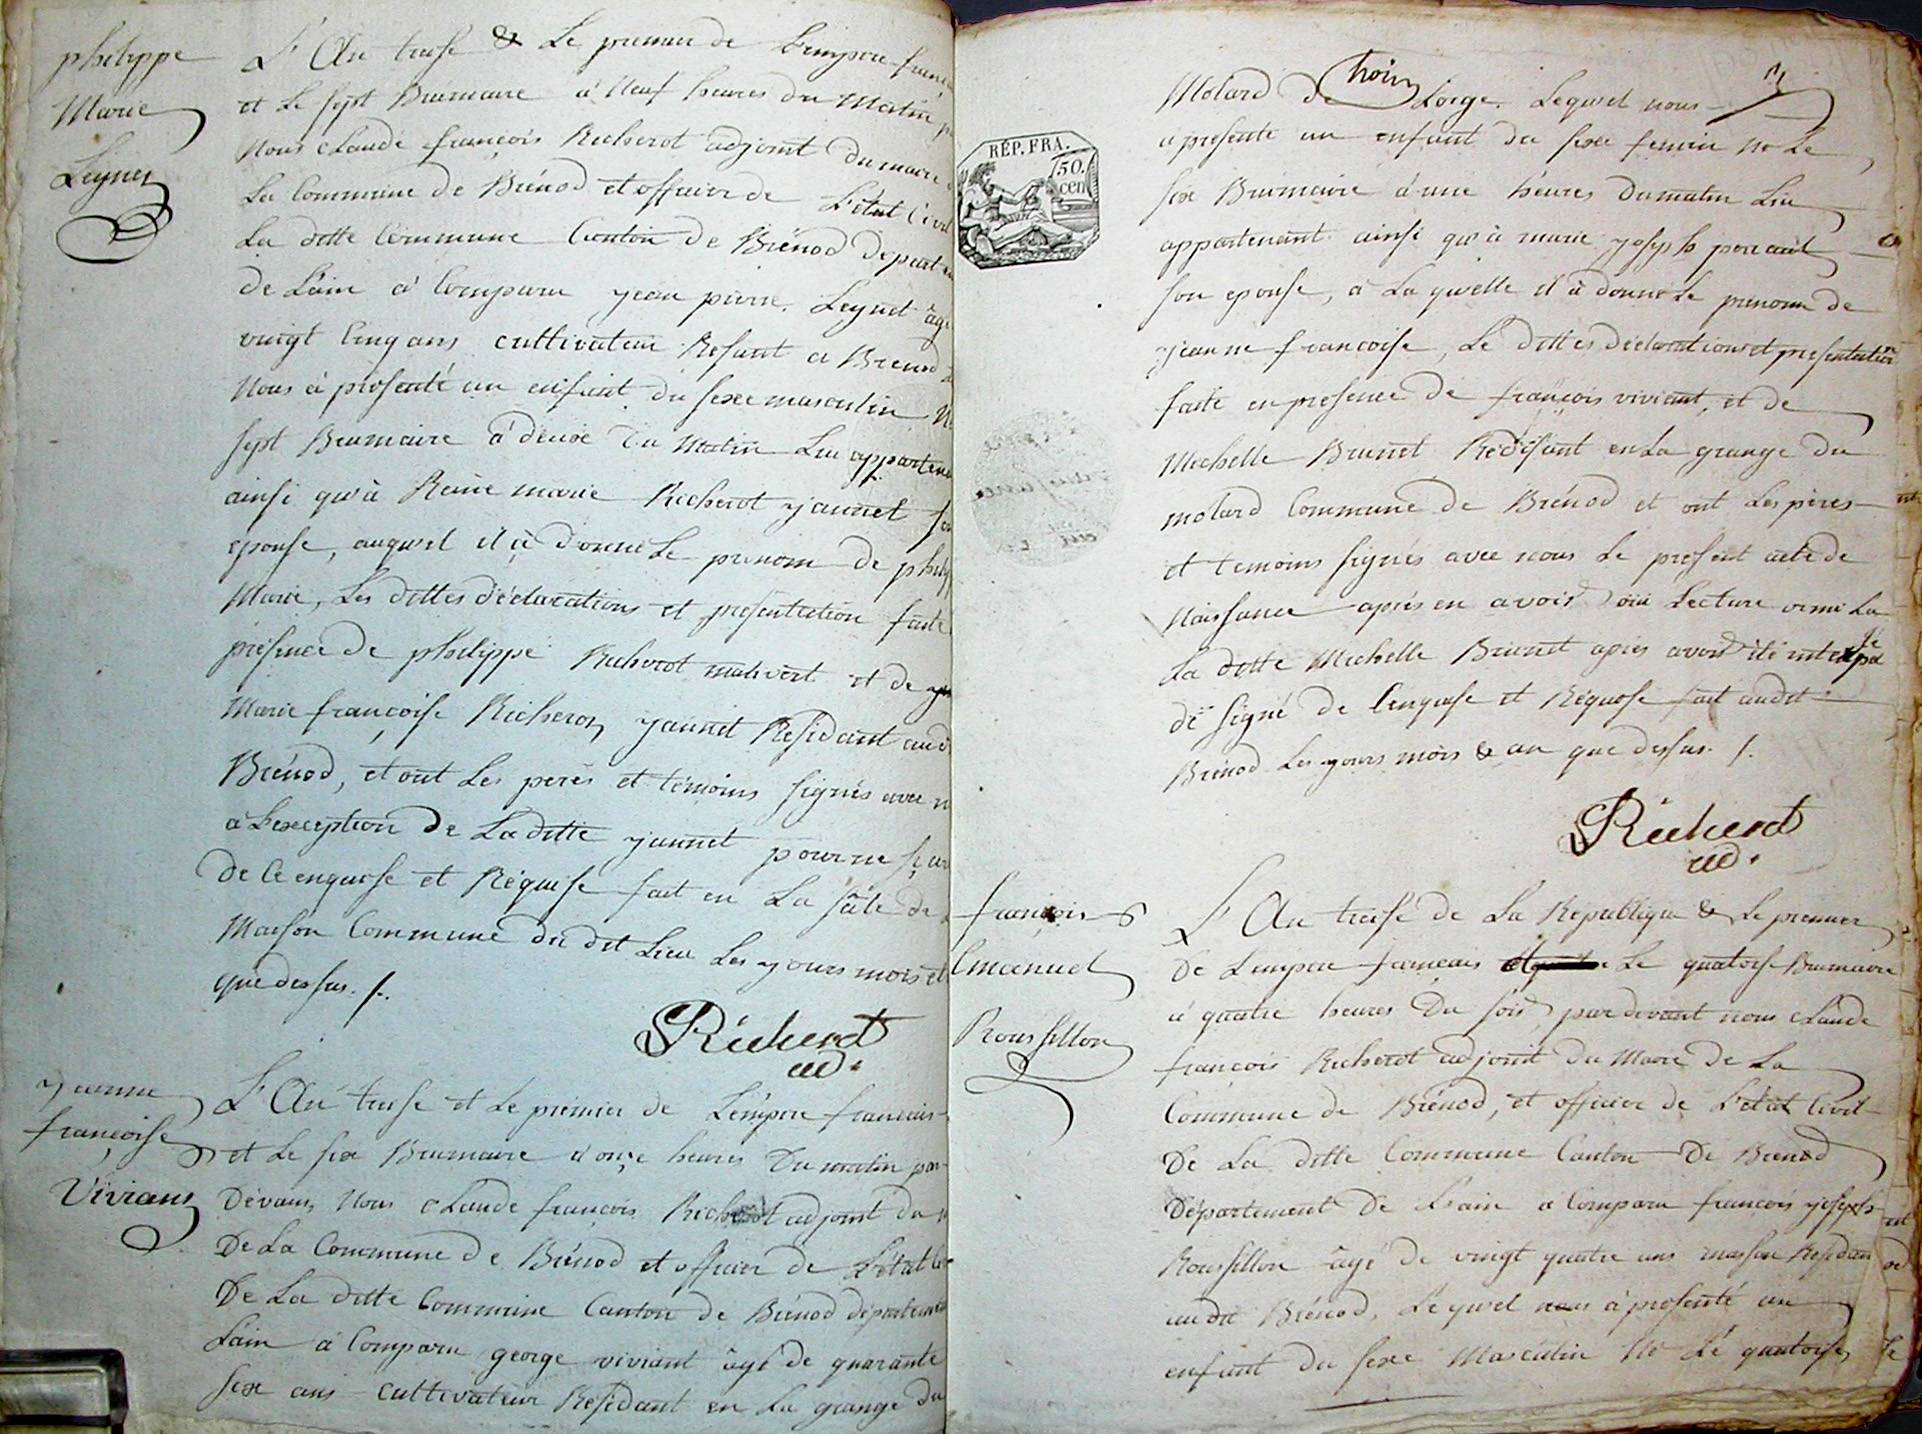 philippe
Marie
Leynet
L'An treise & Le premier de L'empire franç
et Le sept Brumaire à Neuf heures du Matin p
Nous Claude françois Richerot adjoint du maire
La Commune de Brénod et officier de L'état Civil
La ditte Commune Canton de Brénod Depart
de L'ain à Comparu jean pierre Leynet âgé
vingt Cinq ans cultivateur Résant a Brenod
Nous à présenté un enfant du sexe masculin N
sept Brumaire à deuxe du Matin Lui apparten
ainsi qu'à Reine marie Richerot yannet so
epouse, auquel il à donné Le prenom de phily
Marie, Les dittes déclarations et présentation faite
présence de philippe Richerot malivert et de
Marie françoise Richeron yannet Résidant aud
Brénod, et ont Les peres et témoins signés avec n
a L'exception de La ditte yannet pour ne sça
de Ce enquise et Réquise fait en La sâle de
Maison Commune du dit Lieu Les yours mois et
que dessus ./.
Richerot
ad.
yeanne
françoise
Vivians
L'An treise et Le premier de L'empire français
et Le six Brumaire à onze heures du matin par
Devans Nous Claude françois Richerot adjoint du
De La Commune de Brénod et officier de L'état Ci
De La ditte Commune Canton de Brénod départeme
L'ain à Comparu george viviant âgé de quarante
six ans cultivateur Résidant en La grange du
3
Molard de trois Loige. Lequel nous
a présenté un enfant du sexe feminin né Le
six Brumaire à une héures du matin Lui
appartenant ainsi qu'à marie yosephs poncint
son epouse, à La qwelle il à donné Le prenom de
yeanne francoise, Le dittes déclarations et présentation
faite en présence de françois viviant, et de
Michelle Brunet Résidant en La grange du
molard Commune de Brénod et ont Les pères
et temoins signés avec nous Le présent acte de
Naissance après en avoir oui Lecture omi La
La ditte Michelle Brunet après avoir été interpe
de signé de Cenquise et Réquise fait audit
Brénod Les yours mois & an que dessus ./.
Richerot
ad.
RÉP. FRA.
50.
cen
françois
Emanuel
Roussillon
L'An treise de La République & Le premier
De L'empire français Le quatorse Brumaire
à quatre heures Du soir, pardevant nous Claude
françois Richerot adjoint du Maire de La
Commune de Brénod, et officier de L'état Civil
De La ditte Commune Canton De Brénod
Département De L'ain à Comparu françois yosephs
Roussillon âgé de vingt quatre ans masson Résidan
audit Brénod, Leqwel nous à présenté un
enfant du sexe Masculin Né Lé quatorse